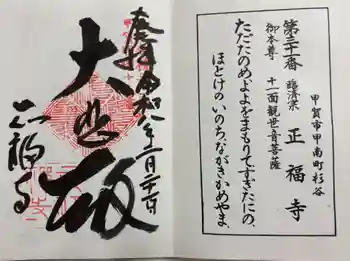 甲賀市甲南町杉谷
第三十一番 臨済宗 正福寺
御本尊 十一面観世音菩薩
ただたのめよよをまもりてすぎたにの、
ほとけのいのちながきかめやま、
奉拝 令和六年一月二十一日
大悲殿
正福寺